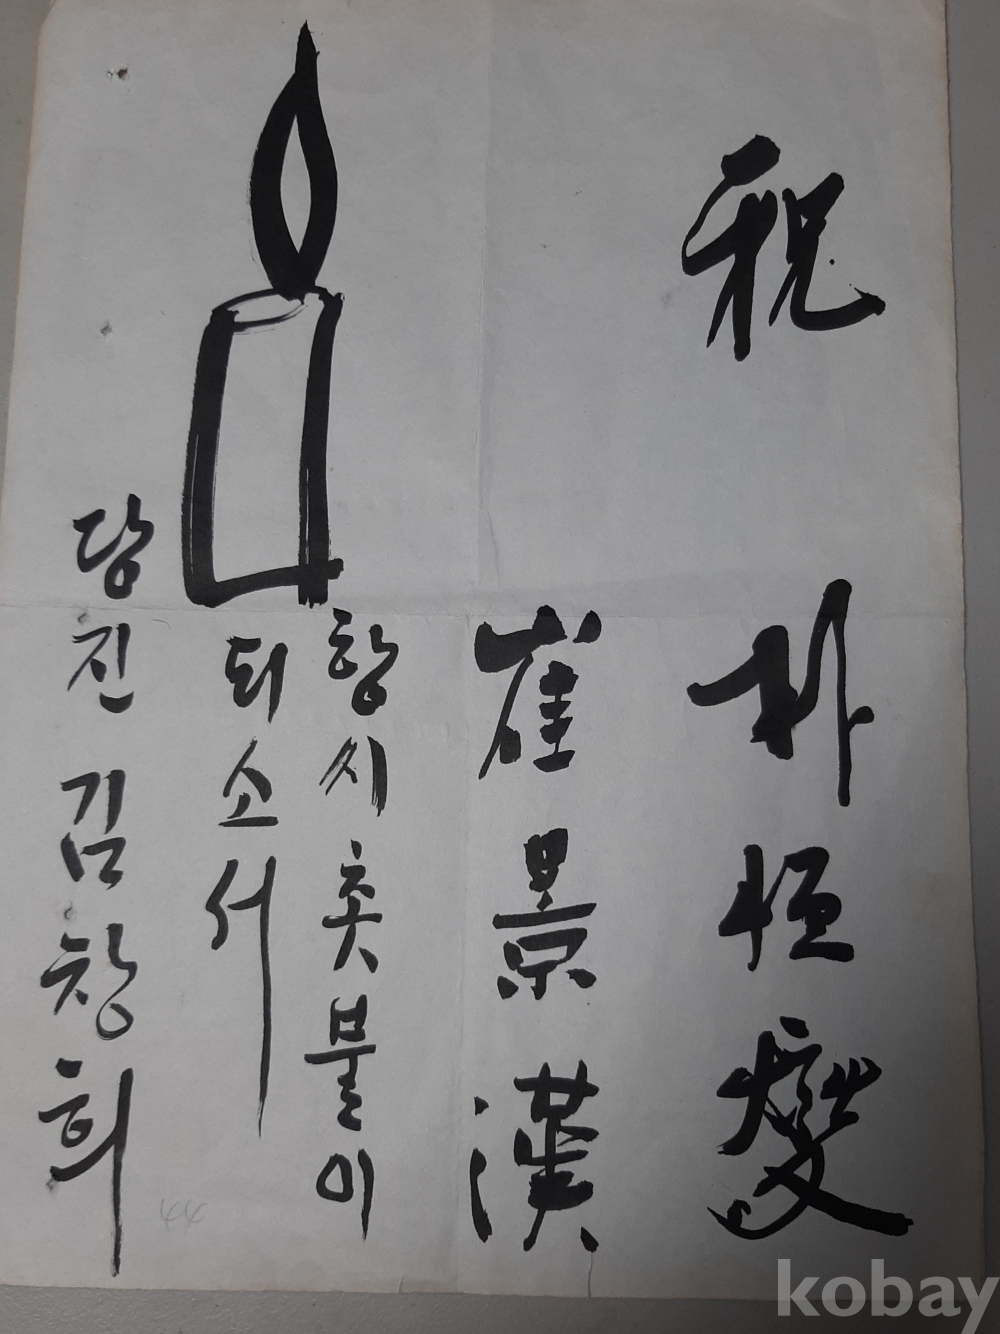 祝
朴恒燮
崔景漢
항시촛불이
되소서
당진 김창희
44
kobay